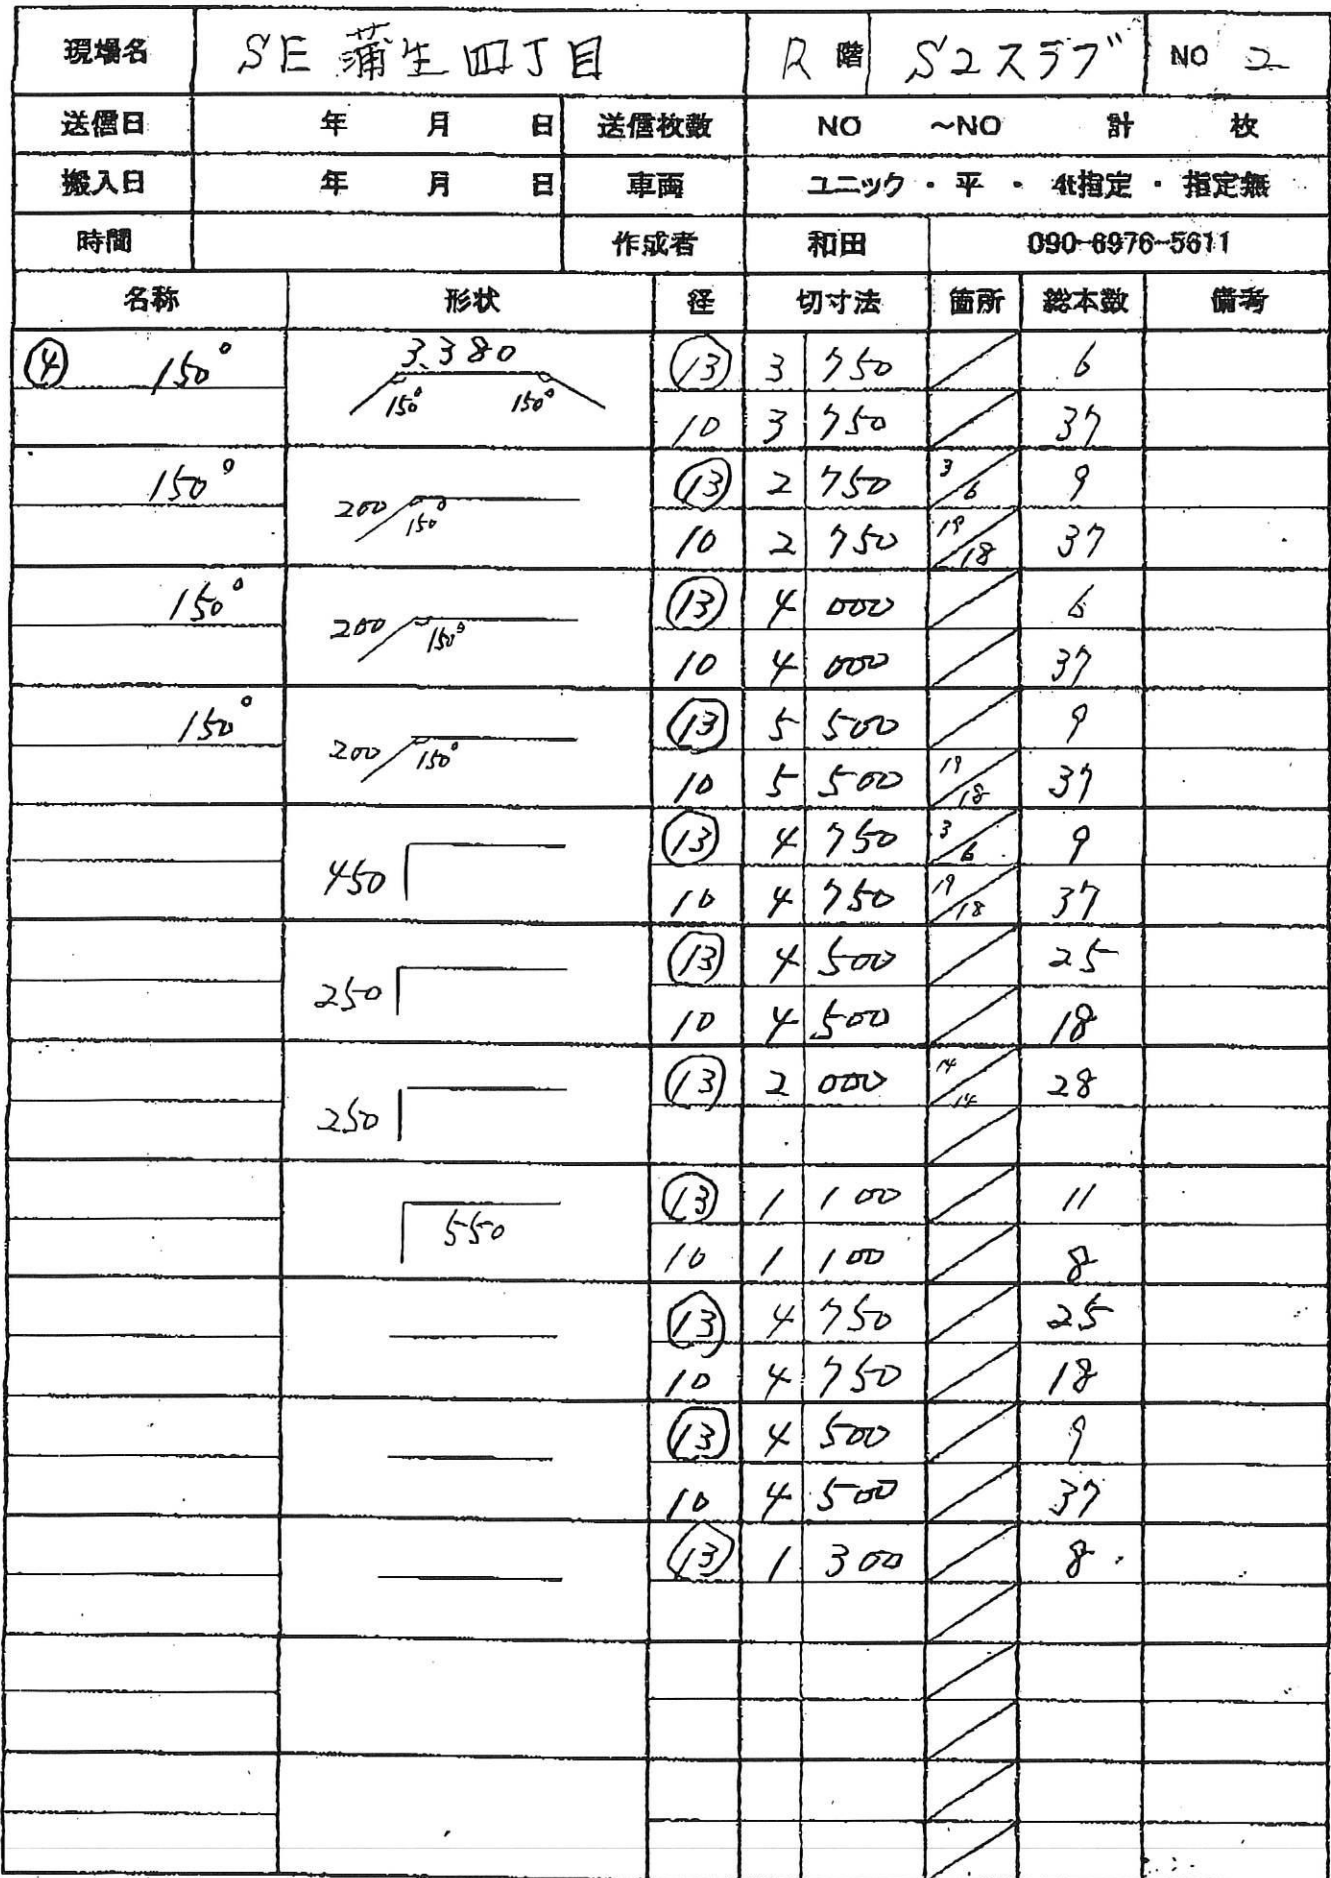 現場名 SE 蒲生四丁目 R 階 S2スラブ NO 2
送信日 年 月 日 送信枚数 NO ～NO 計 枚
搬入日 年 月 日 車両 ユニック ・ 平 ・ 4t指定 ・ 指定無
時間 作成者 和田 090-6976-5611
名称 形状 径 切寸法 箇所 総本数 備考
④ 150° 3,380 150° 150° ⑬ 3 750 6
10 3 750 37
150° 200 150° ⑬ 2 750 3/6 9
10 2 750 19/18 37
150° 200 150° ⑬ 4 000 6
10 4 000 37
150° 200 150° ⑬ 5 500 9
10 5 500 19/18 37
450 ⑬ 4 750 3/6 9
10 4 750 19/18 37
250 ⑬ 4 500 25
10 4 500 18
250 ⑬ 2 000 14/14 28
550 ⑬ 1 100 11
10 1 100 8
⑬ 4 750 25
10 4 750 18
⑬ 4 500 9
10 4 500 37
⑬ 1 300 8